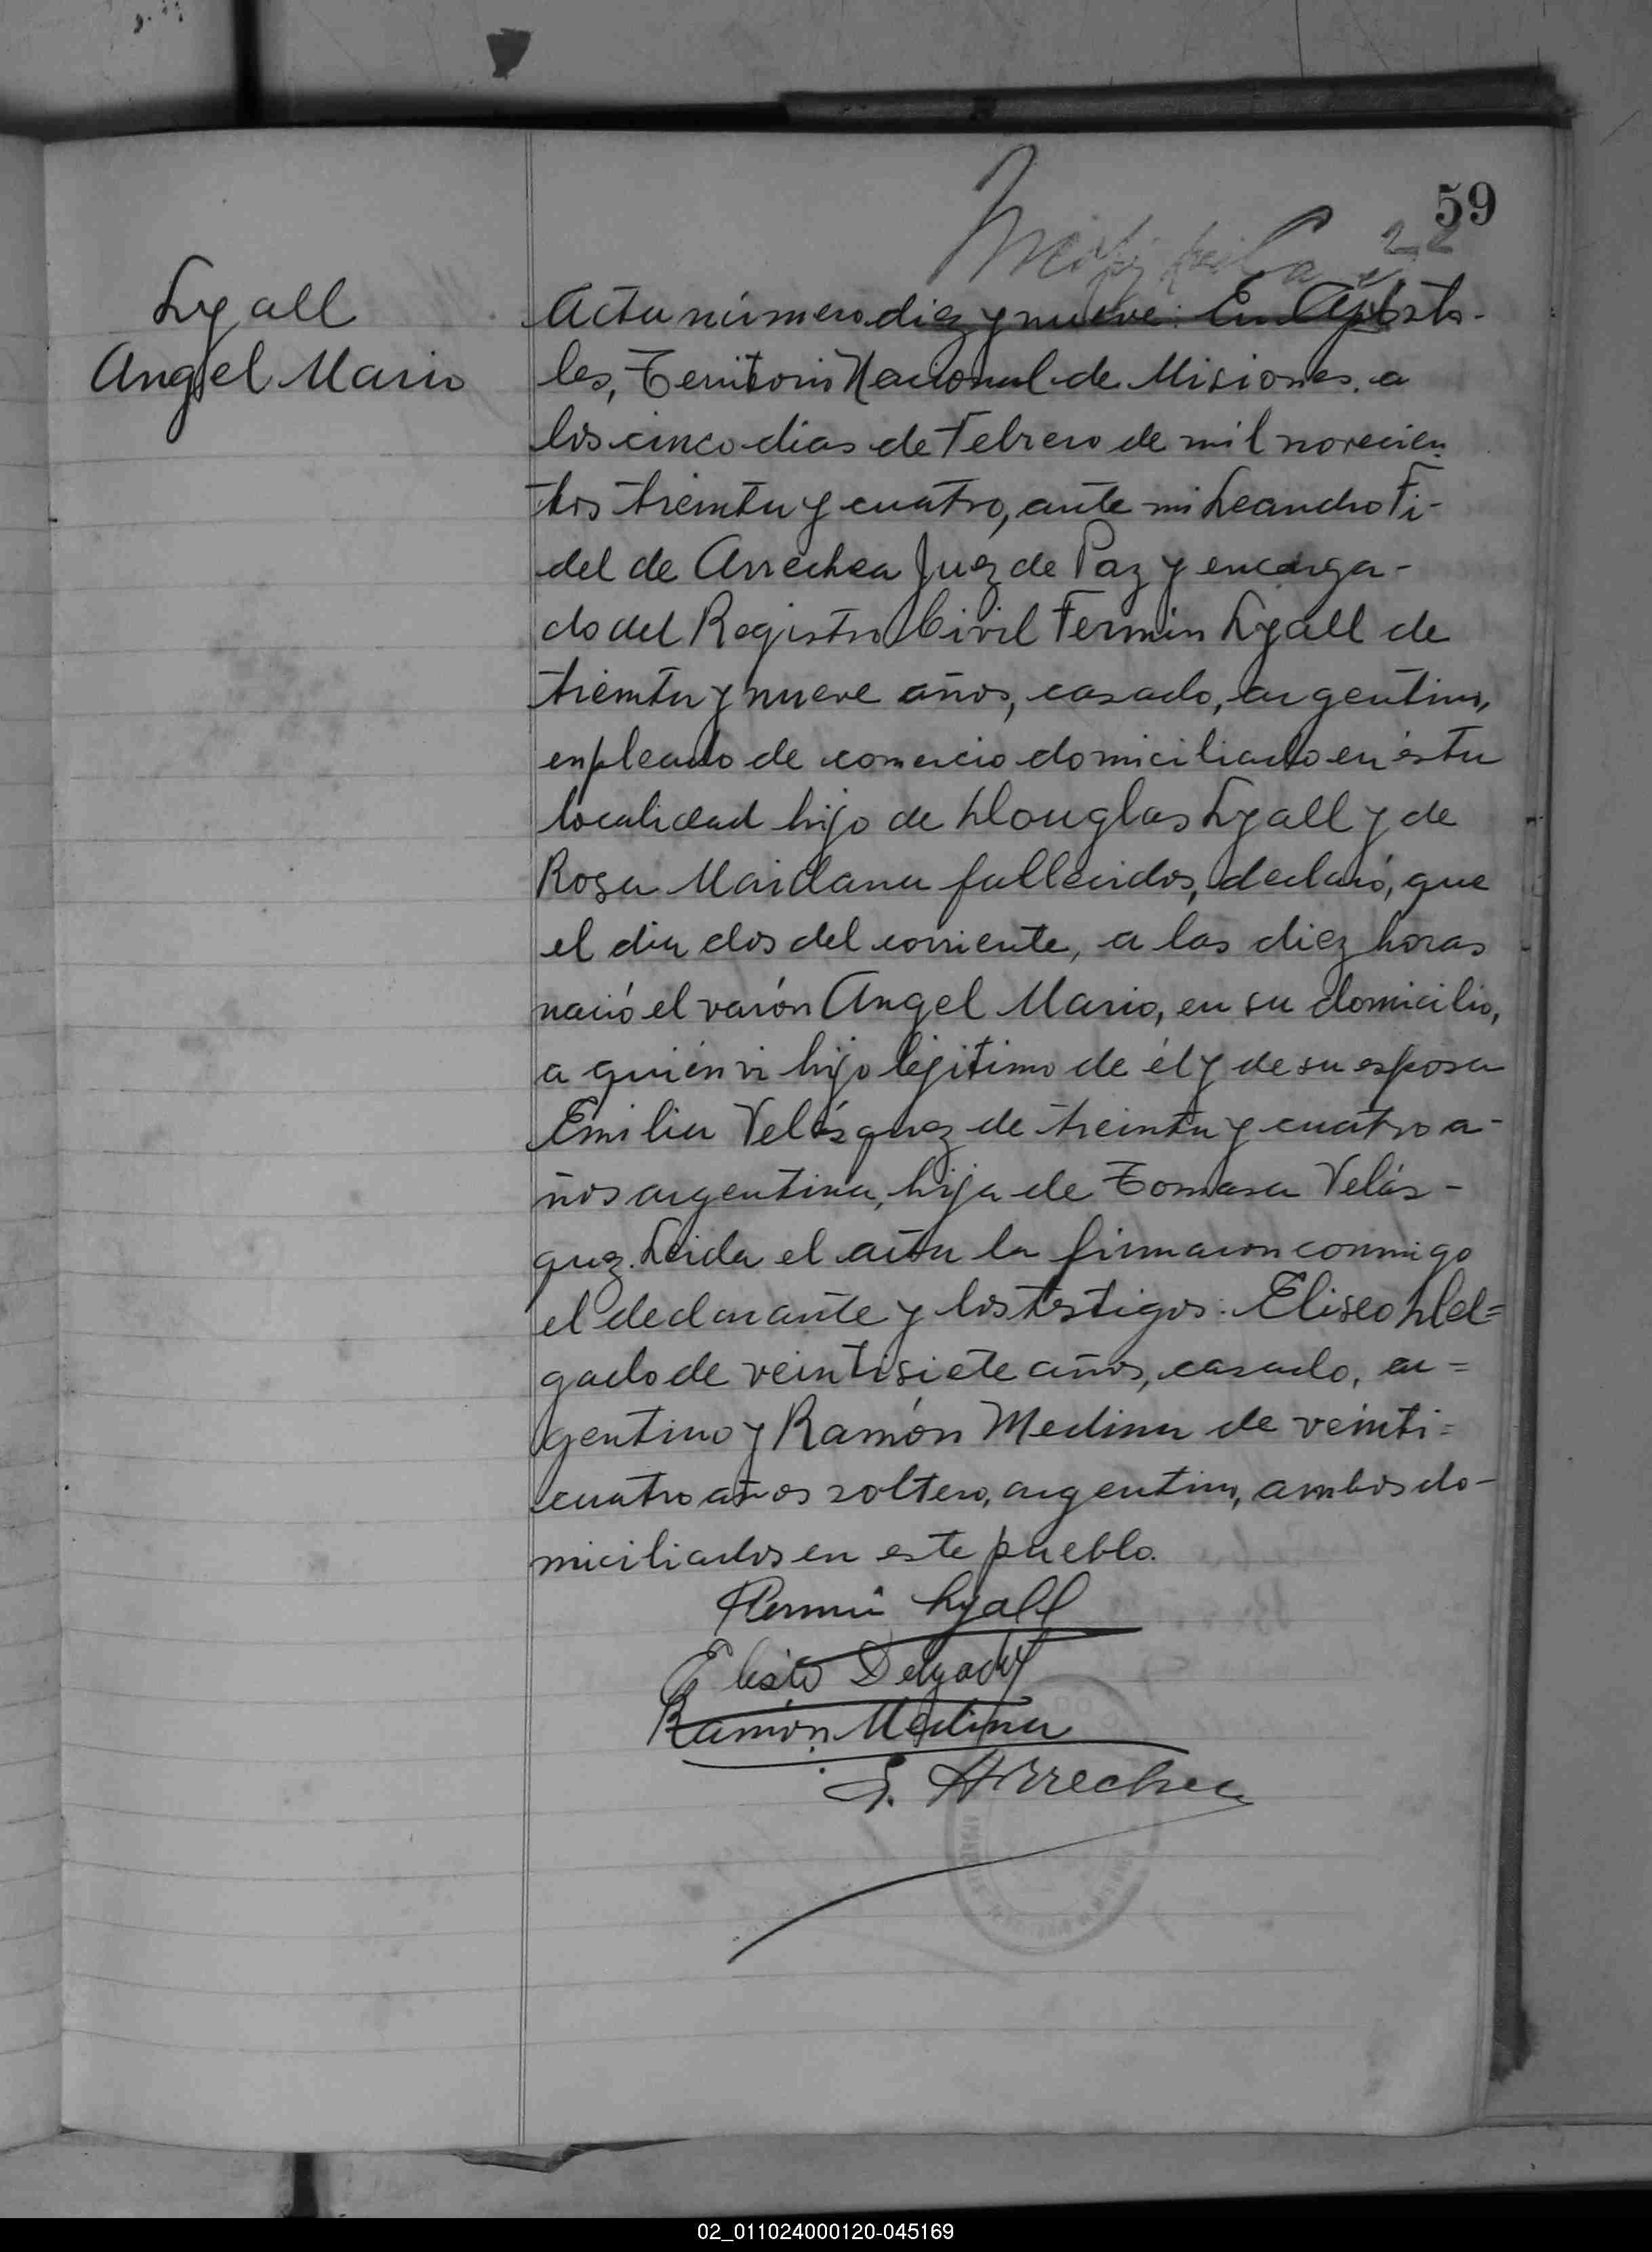 59
22
Lyall
Angel Mario
Acta número diez y nueve: En Apósto-
les, Territorio Nacional de Misiones, a
los cinco dias de Febrero de mil novecien-
tos treinta y cuatro, ante mi Leandro Fi-
del de Arrechea Juez de Paz y encarga-
do del Registro Civil Fermin Lyall de
treinta y nueve años, casado, argentino,
enpleado de comercio domiciliado en ésta
localidad hijo de Douglas Lyall y de
Rosa Maidana fallecidos, declaró, que
el dia dos del corriente, a las diez horas
nació el varón Angel Mario, en su domicilio,
a quién vi hijo lejitimo de él y de su esposa
Emilia Velásquez de treinta y cuatro a-
ños argentina, hija de Tomasa Velás-
quez. Leida el acta la firmaron conmigo
el declarante y los testigos: Eliseo Del=
gado de veintisiete años, casado, ar=
gentino y Ramón Medina de veinti=
cuatro años soltero, argentino, ambos do-
miciliados en este pueblo.
Fermin Lyall
Eliseo Delgado
Ramón Medina
L. Arrechea
02_011024000120-045169